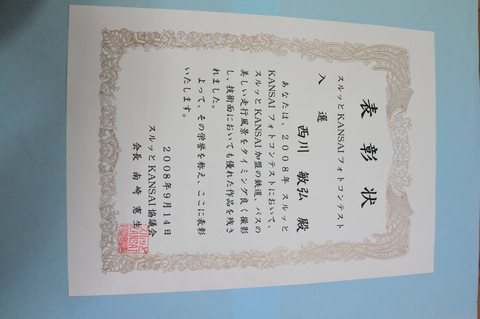 表彰状
スルッとKANSAIフォトコンテスト
入選
西川 敏弘 殿
あなたは、2008年 スルッと
KANSAIフォトコンテストにおいて、
スルッとKANSAI加盟の鉄道、バスの
美しい走行風景をタイミング良く撮影
し、技術面においても優れた作品を残さ
れました。
よって、その栄誉を称え、ここに表彰
いたします。
2008年9月14日
スルッとKANSAI協議会
会長 南崎 憲生